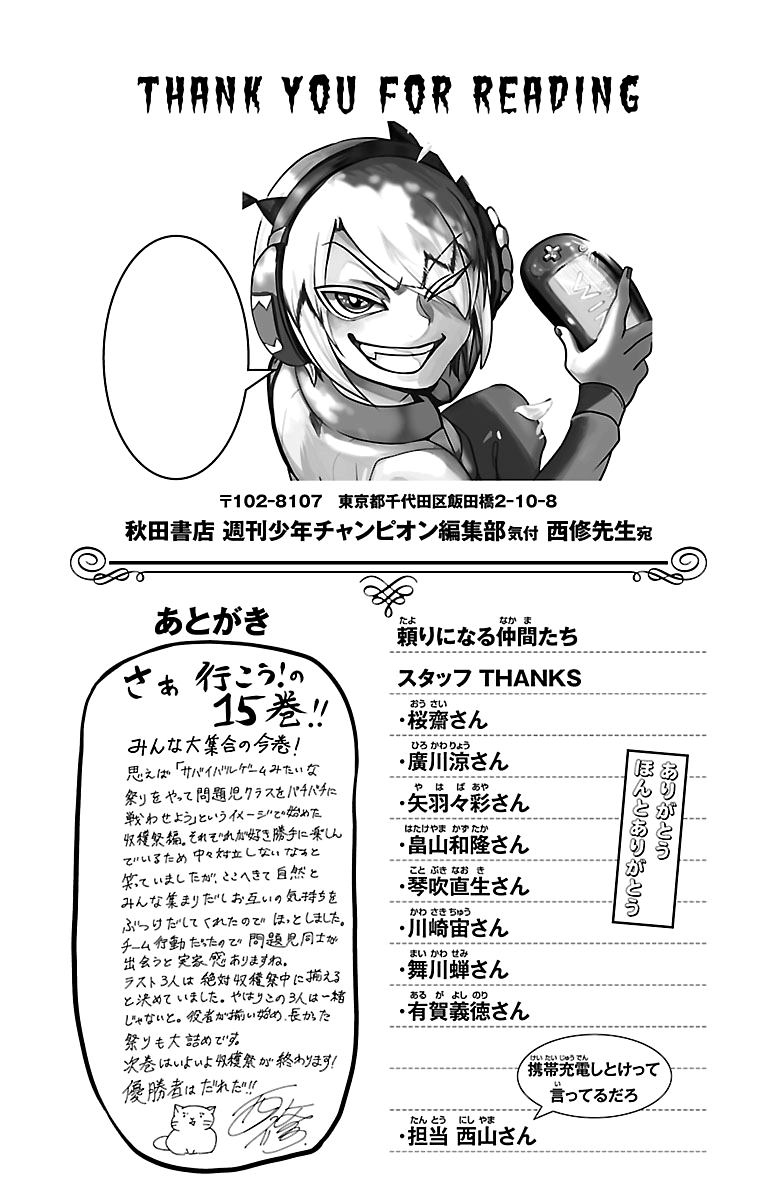 THANK YOU FOR READING
WIN
〒102-8107　東京都千代田区飯田橋2-10-8
秋田書店 週刊少年チャンピオン編集部気付 西修先生宛
あとがき
さぁ 行こう!の
15巻!!
みんな大集合の今巻!
思えば「サバイバルゲームみたいな
祭りをやって問題児クラスをバチバチに
戦わせよう」というイメージで始めた
収穫祭編。それぞれが好き勝手に楽しん
でいるため中々対立しないなぁと
笑っていましたが、ここへきて自然と
みんな集まりだしお互いの気持ちを
ぶつけだしてくれたのでほっとしました。
チーム行動だったので問題児同士が
出会うと実家感ありますね。
ラスト3人は絶対収穫祭中に揃える
と決めていました。やはりこの3人は一緒
じゃないと。役者が揃い始め、長かった
祭りも大詰めです。
次巻はいよいよ収穫祭が終わります!
優勝者はだれだ!!
西修
頼りになる仲間たち
スタッフ THANKS
・桜齋さん
・廣川涼さん
・矢羽々彩さん
・畠山和隆さん
・琴吹直生さん
・川崎宙さん
・舞川蝉さん
・有賀義徳さん
ありがとう
ほんとありがとう
携帯充電しとけって
言ってるだろ
・担当 西山さん